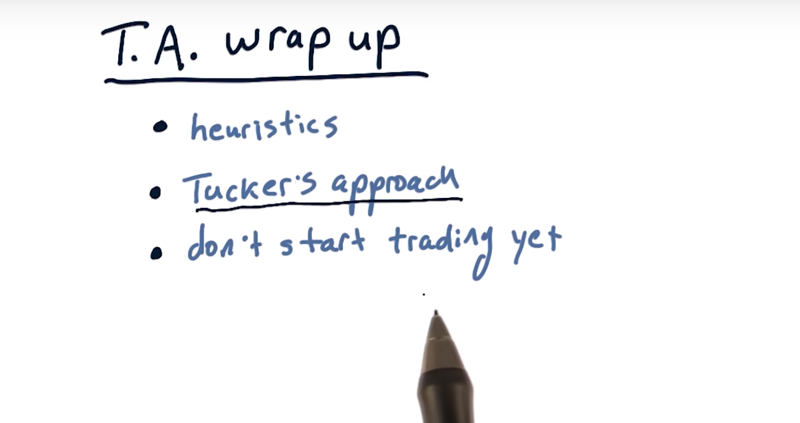 T.A. wrap up
• heuristics
• Tucker's approach
• don't start trading yet